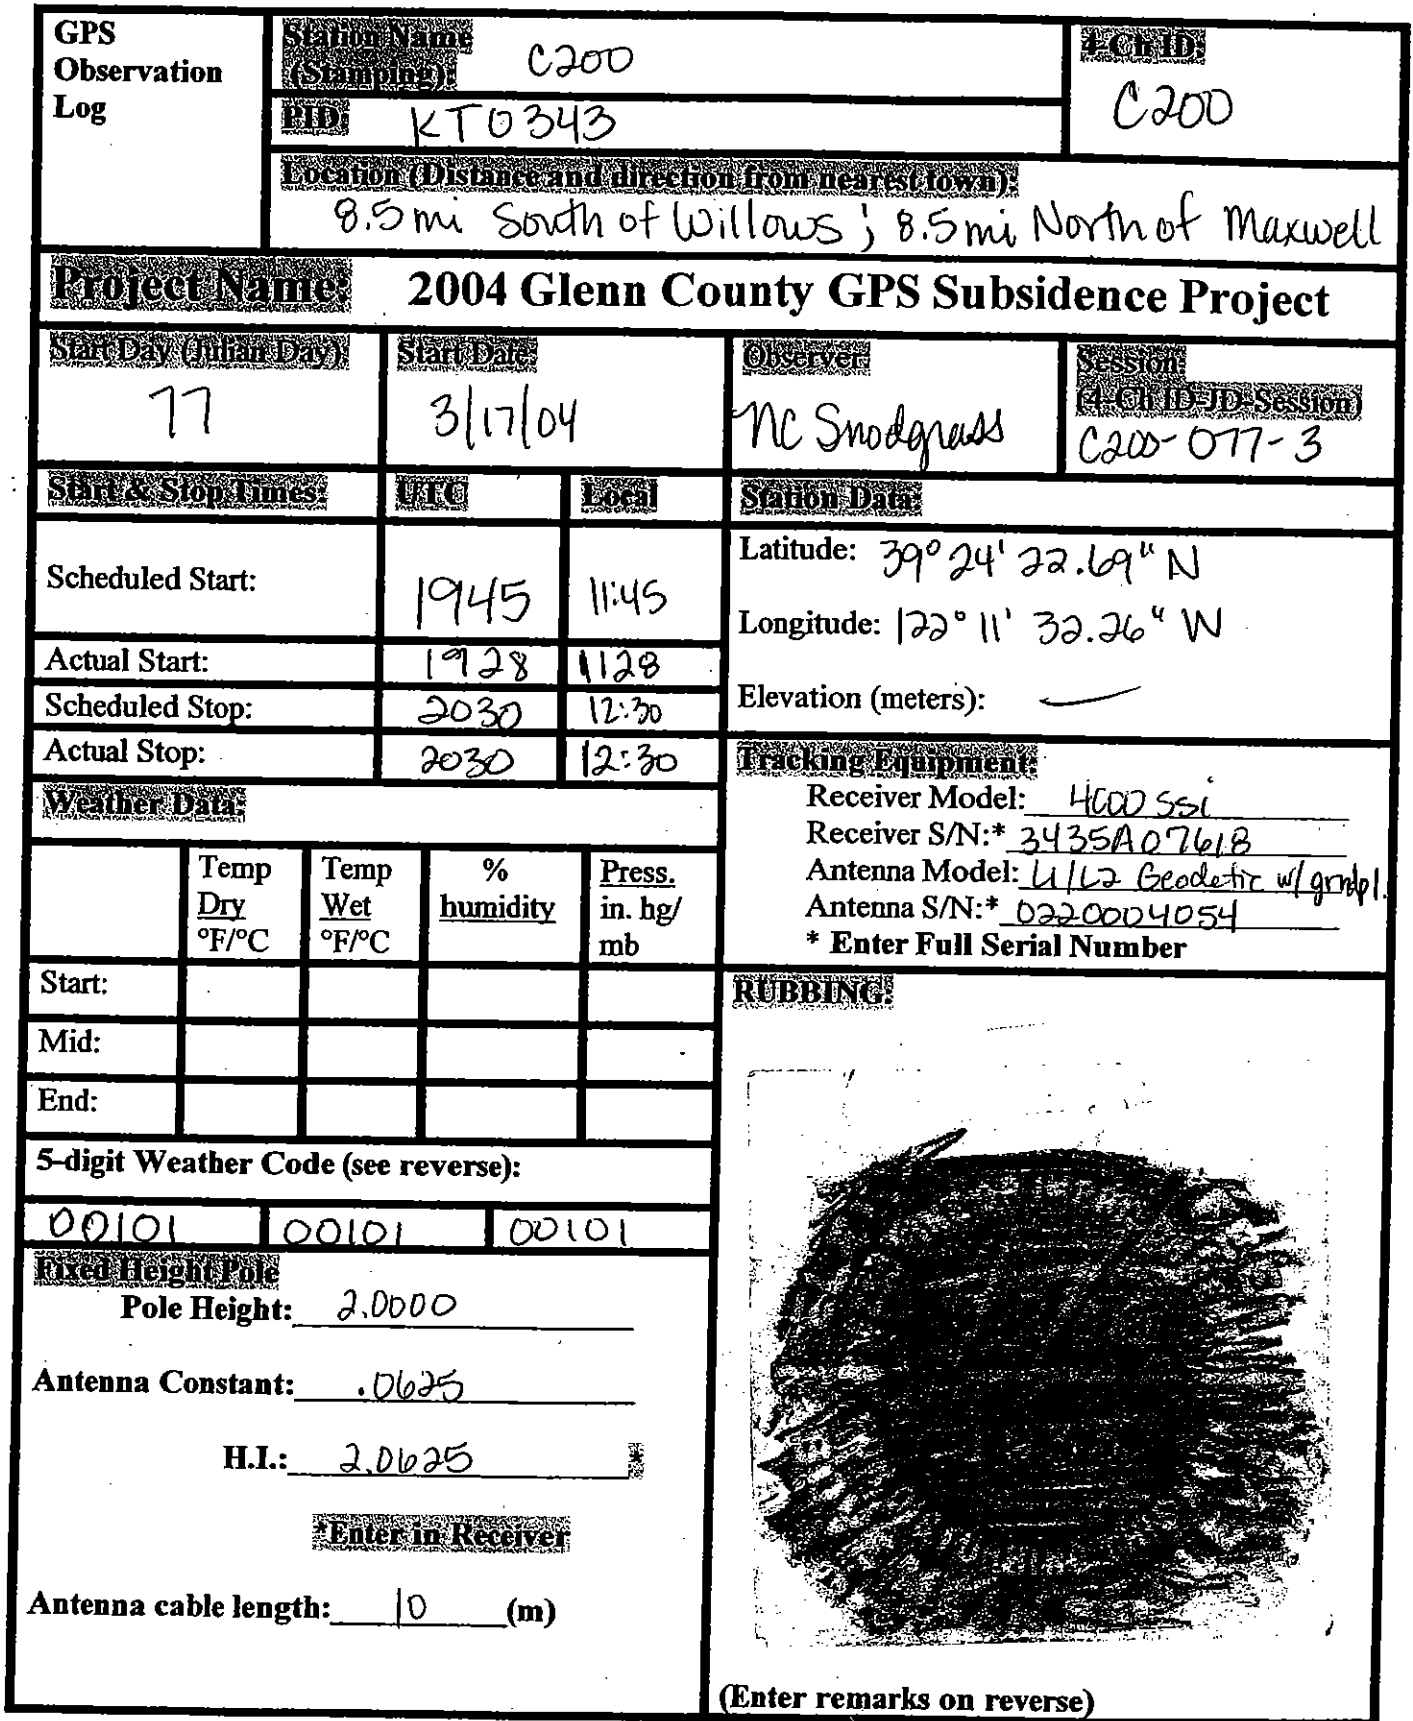 GPS
Observation
Log
Station Name
(Stamping):
C200
4-Ch ID:
C200
PID: KT0343
Location (Distance and direction from nearest town):
8.5 mi South of Willows ; 8.5 mi North of Maxwell
Project Name: 2004 Glenn County GPS Subsidence Project
Start Day (Julian Day)
77
Start Date:
3/17/04
Observer:
NC Snodgrass
Session:
(4-Ch ID-JD-Session)
C200-077-3
Start & Stop Times: UTC Local
Scheduled Start: 1945 11:45
Actual Start: 1928 1128
Scheduled Stop: 2030 12:30
Actual Stop: 2030 12:30
Station Data:
Latitude: 39° 24' 22.69" N
Longitude: 122° 11' 32.26" W
Elevation (meters): —
Tracking Equipment:
Receiver Model: 4000 SSi
Receiver S/N:* 3435A07618
Antenna Model: L1/L2 Geodetic w/ grndpl.
Antenna S/N:* 0220004054
* Enter Full Serial Number
Weather Data:
Temp
Dry
°F/°C
Temp
Wet
°F/°C
%
humidity
Press.
in. hg/
mb
Start:
Mid:
End:
5-digit Weather Code (see reverse):
00101 00101 00101
Fixed Height Pole
Pole Height: 2.0000
Antenna Constant: .0625
H.I.: 2.0625 *
*Enter in Receiver
Antenna cable length: 10 (m)
RUBBING:
(Enter remarks on reverse)